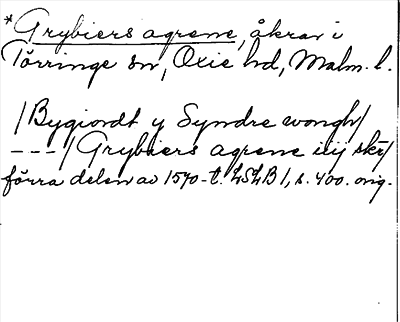 *Grybiers agrene, åkrar i
Törringe sn, Oxie hd, Malm. l.
/Bygiordt y Syndre wongh/
---/Grybiers agrene iiij skr/
förra delen av 1570-t. LSLB 1, s. 400. orig.